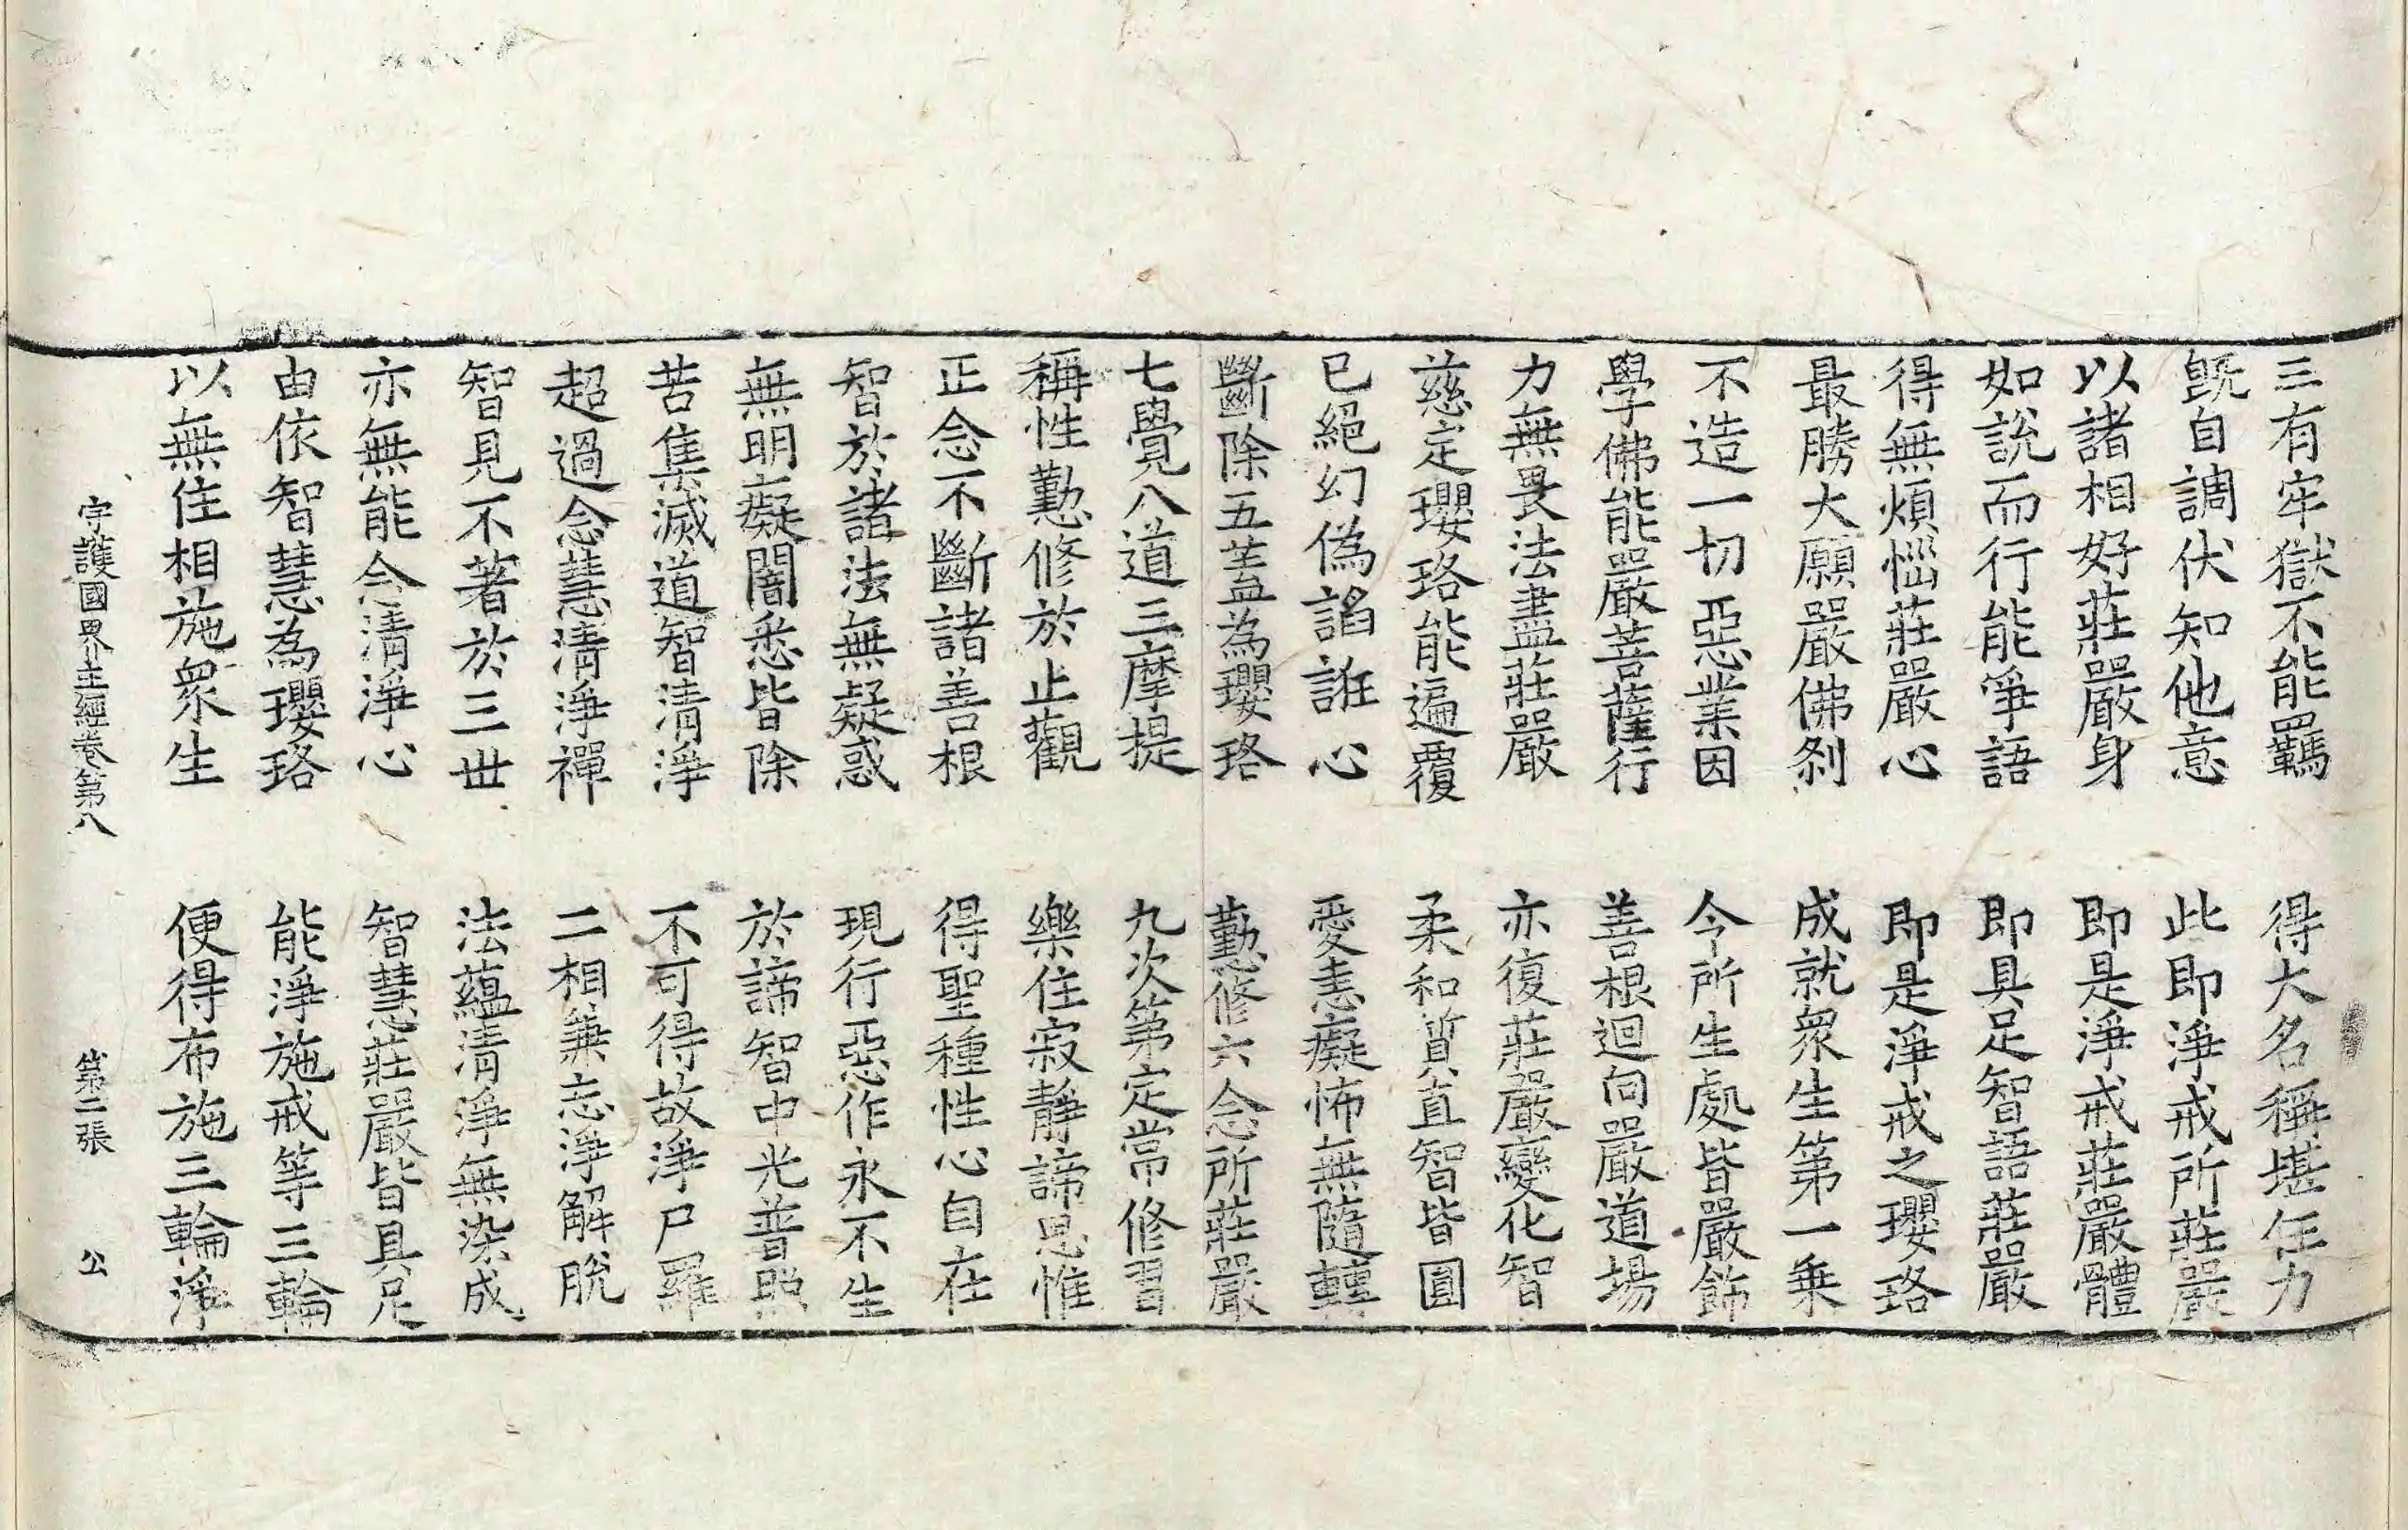 三有牢獄不能羈　得大名稱堪任力
旣自調伏知他意　此即淨戒所莊嚴
以諸相好莊嚴身　即是淨戒莊嚴體
如說而行能爭語　即具足智語莊嚴
得無煩惱莊嚴心　即是淨戒之瓔珞
最勝大願嚴佛刹　成就衆生第一乗
不造一切惡業因　今所生處皆嚴飾
學佛能嚴菩薩行　善根迴向嚴道場
力無畏法盡莊嚴　亦復莊嚴變化智
慈定瓔珞能遍覆　柔和質直智皆圓
已絕幻偽諂誑心　愛恚癡怖無隨轉
斷除五盖為瓔珞　勤修六念所莊嚴
七覺八道三摩提　九次第定常修習
稱性勤修於止觀　樂住寂靜諦思惟
正念不斷諸善根　得聖種性心自在
智於諸法無疑惑　現行惡作永不生
無明癡闇悉皆除　於諦智中光普照
苦集滅道智清淨　不可得故淨尸羅
超過念慧清淨禪　二相兼忘淨解脫
智見不著於三世　法蘊清淨無染成
亦無能念清淨心　智慧莊嚴皆具足
由依智慧為瓔珞　能淨施戒等三輪
以無住相施衆生　便得布施三輪淨
守護國界主經卷第八　第二張　公